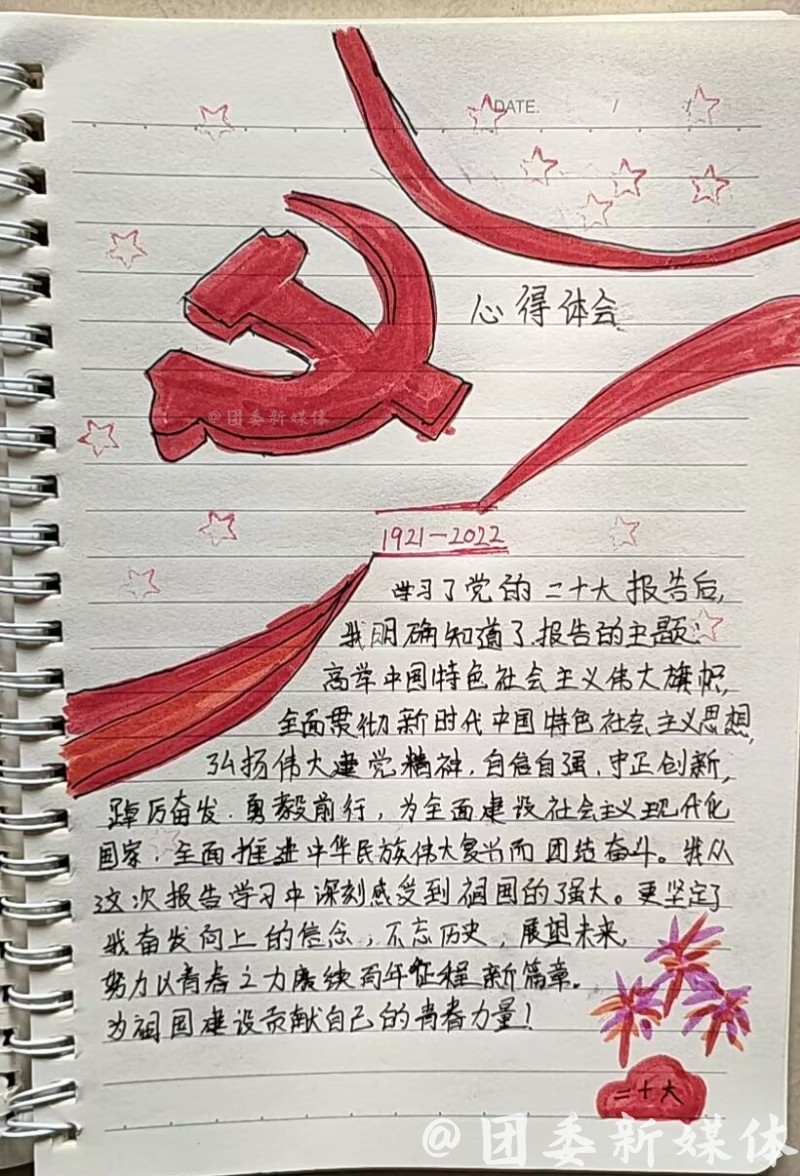 DATE. / /
心得体会
@团委新媒体
1921-2022
学习了党的二十大报告后,
我明确知道了报告的主题:
高举中国特色社会主义伟大旗帜,
全面贯彻新时代中国特色社会主义思想,
弘扬伟大建党精神,自信自强、守正创新,
踔厉奋发、勇毅前行,为全面建设社会主义现代化
国家、全面推进中华民族伟大复兴而团结奋斗。我从
这次报告学习中深刻感受到祖国的强大。更坚定了
我奋发向上的信念,不忘历史,展望未来,
努力以青春之力赓续百年征程新篇章。
为祖国建设贡献自己的青春力量!
二十大
@团委新媒体